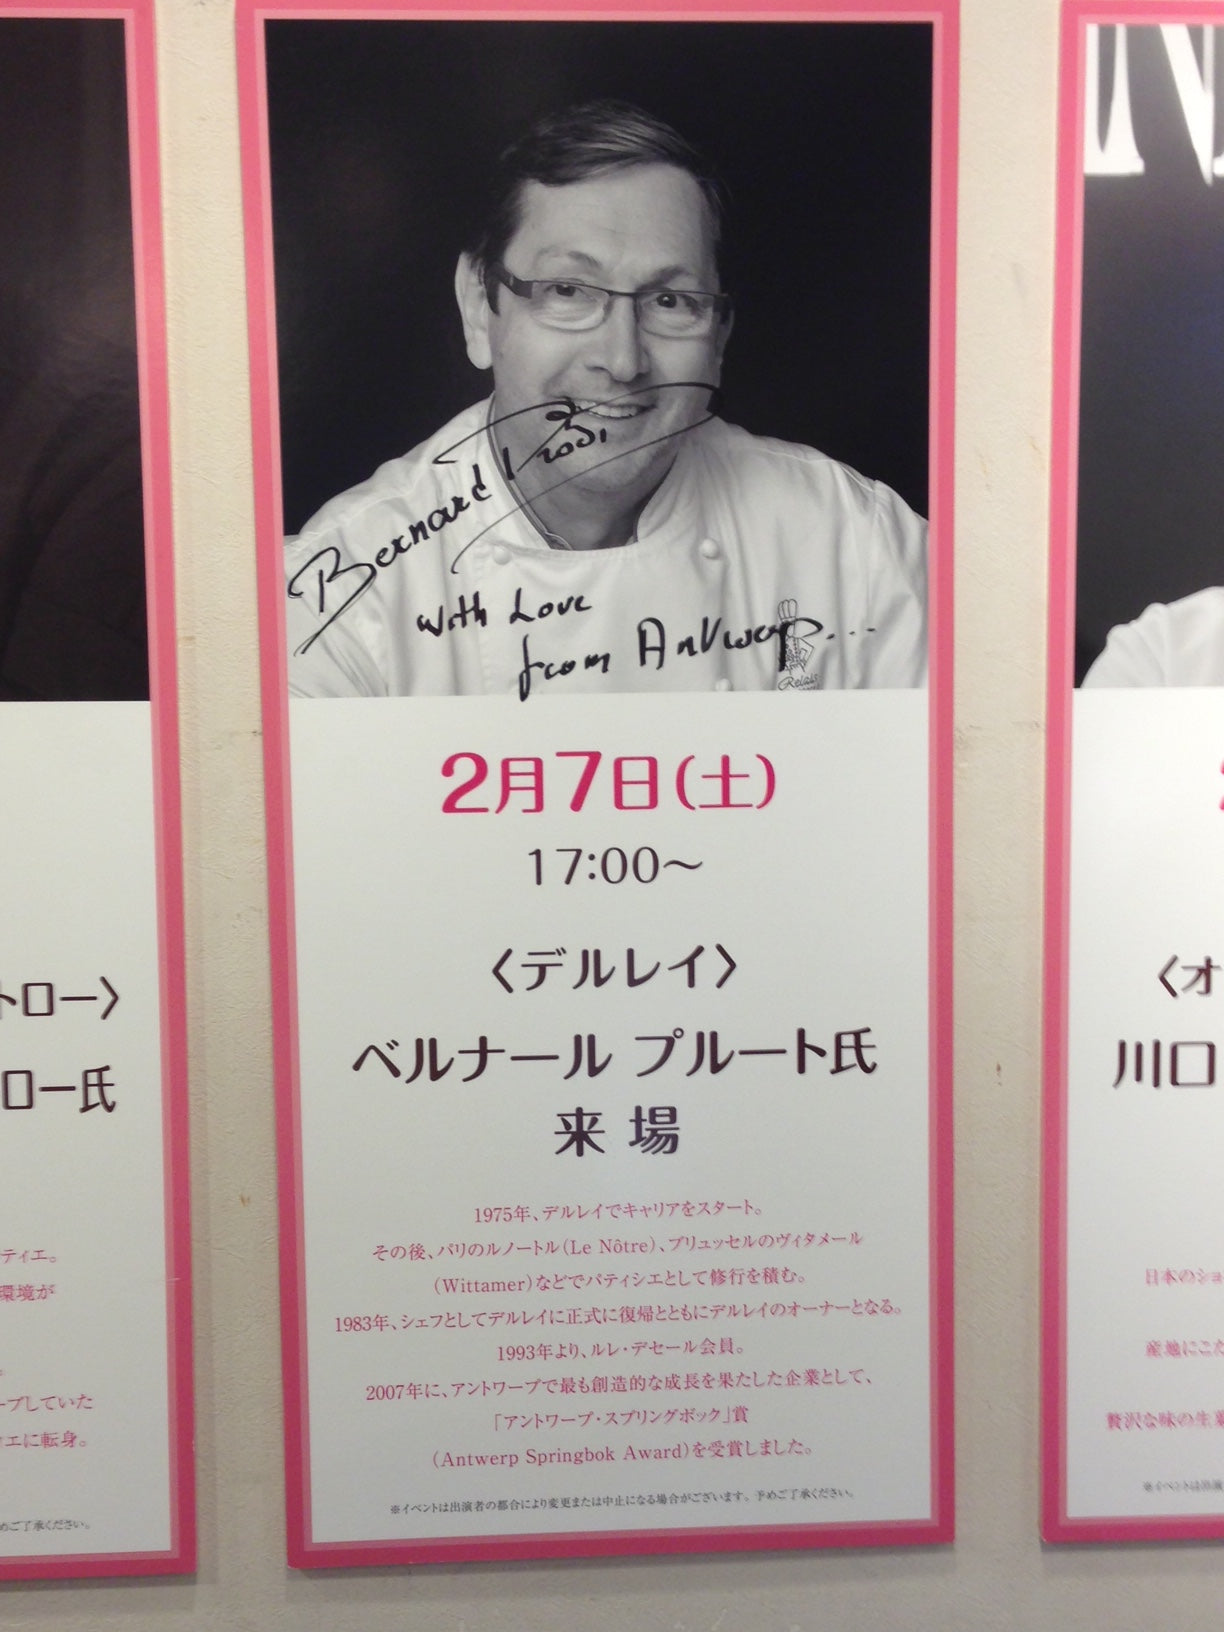 Bernard
with Love
from Antwerp...
Relais
2月7日(土)
17:00～
〈デルレイ〉
ベルナール プルート氏
来 場
1975年、デルレイでキャリアをスタート。
その後、パリのルノートル(Le Nôtre)、ブリュッセルのヴィタメール
(Wittamer)などでパティシエとして修行を積む。
1983年、シェフとしてデルレイに正式に復帰とともにデルレイのオーナーとなる。
1993年より、ルレ・デセール会員。
2007年に、アントワープで最も創造的な成長を果たした企業として、
「アントワープ・スプリングボック」賞
(Antwerp Springbok Award)を受賞しました。
※イベントは出演者の都合により変更または中止になる場合がございます。予めご了承ください。
トロー〉
ロー氏
ティエ。
環境が
。
ープしていた
ィエに転身。
めご了承ください。
N
〈オ
川口
日本のショ
産地にこだ
贅沢な味の生菓
※イベントは出演